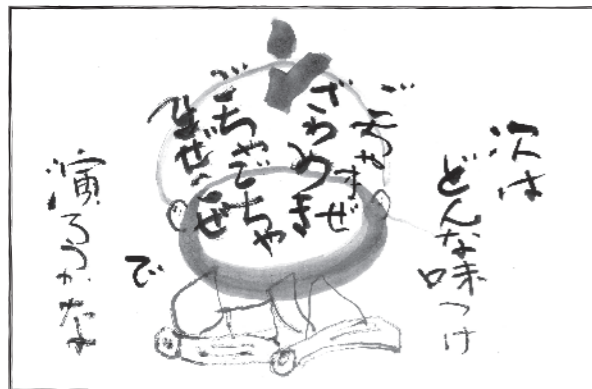 次は
どんな味つけ
ごちゃまぜ
ざわめき
ごちゃごちゃ
まぜこぜ
で
演ろうかな